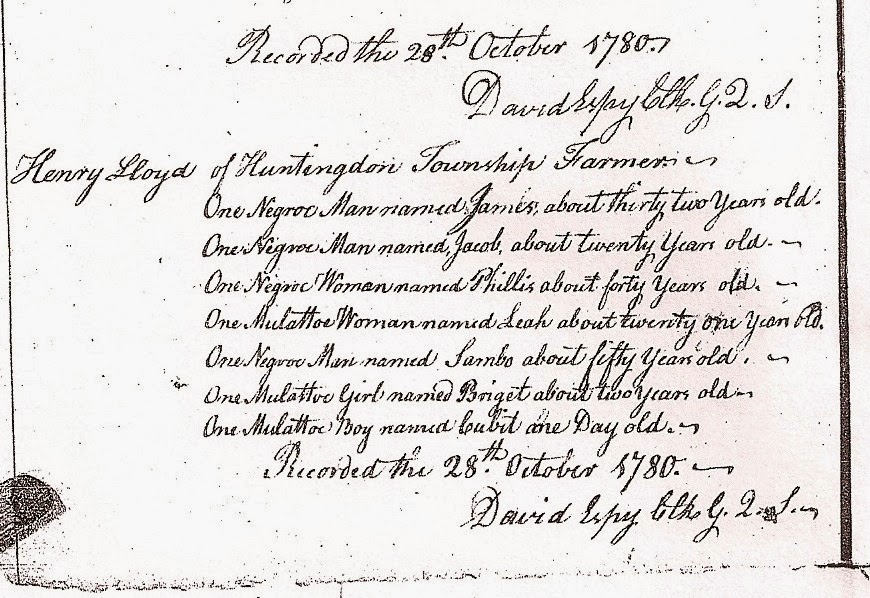 Recorded the 28th. October 1780.
David Espy Clk. G. Q. S.
Henry Lloyd of Huntingdon Township Farmer
One Negroe Man named James, about thirty two Years old.
One Negroe Man named, Jacob, about twenty Years old.
One Negroe Woman named Phillis about forty Years old.
One Mulattoe Woman named Leah about twenty one Years old.
One Negroe Man named Sambo about fifty Years old.
One Mulattoe Girl named Briget about two Years old
One Mulattoe Boy named Cubit one Day old.
Recorded the 28th. October 1780.
David Espy Clk G. Q. S.